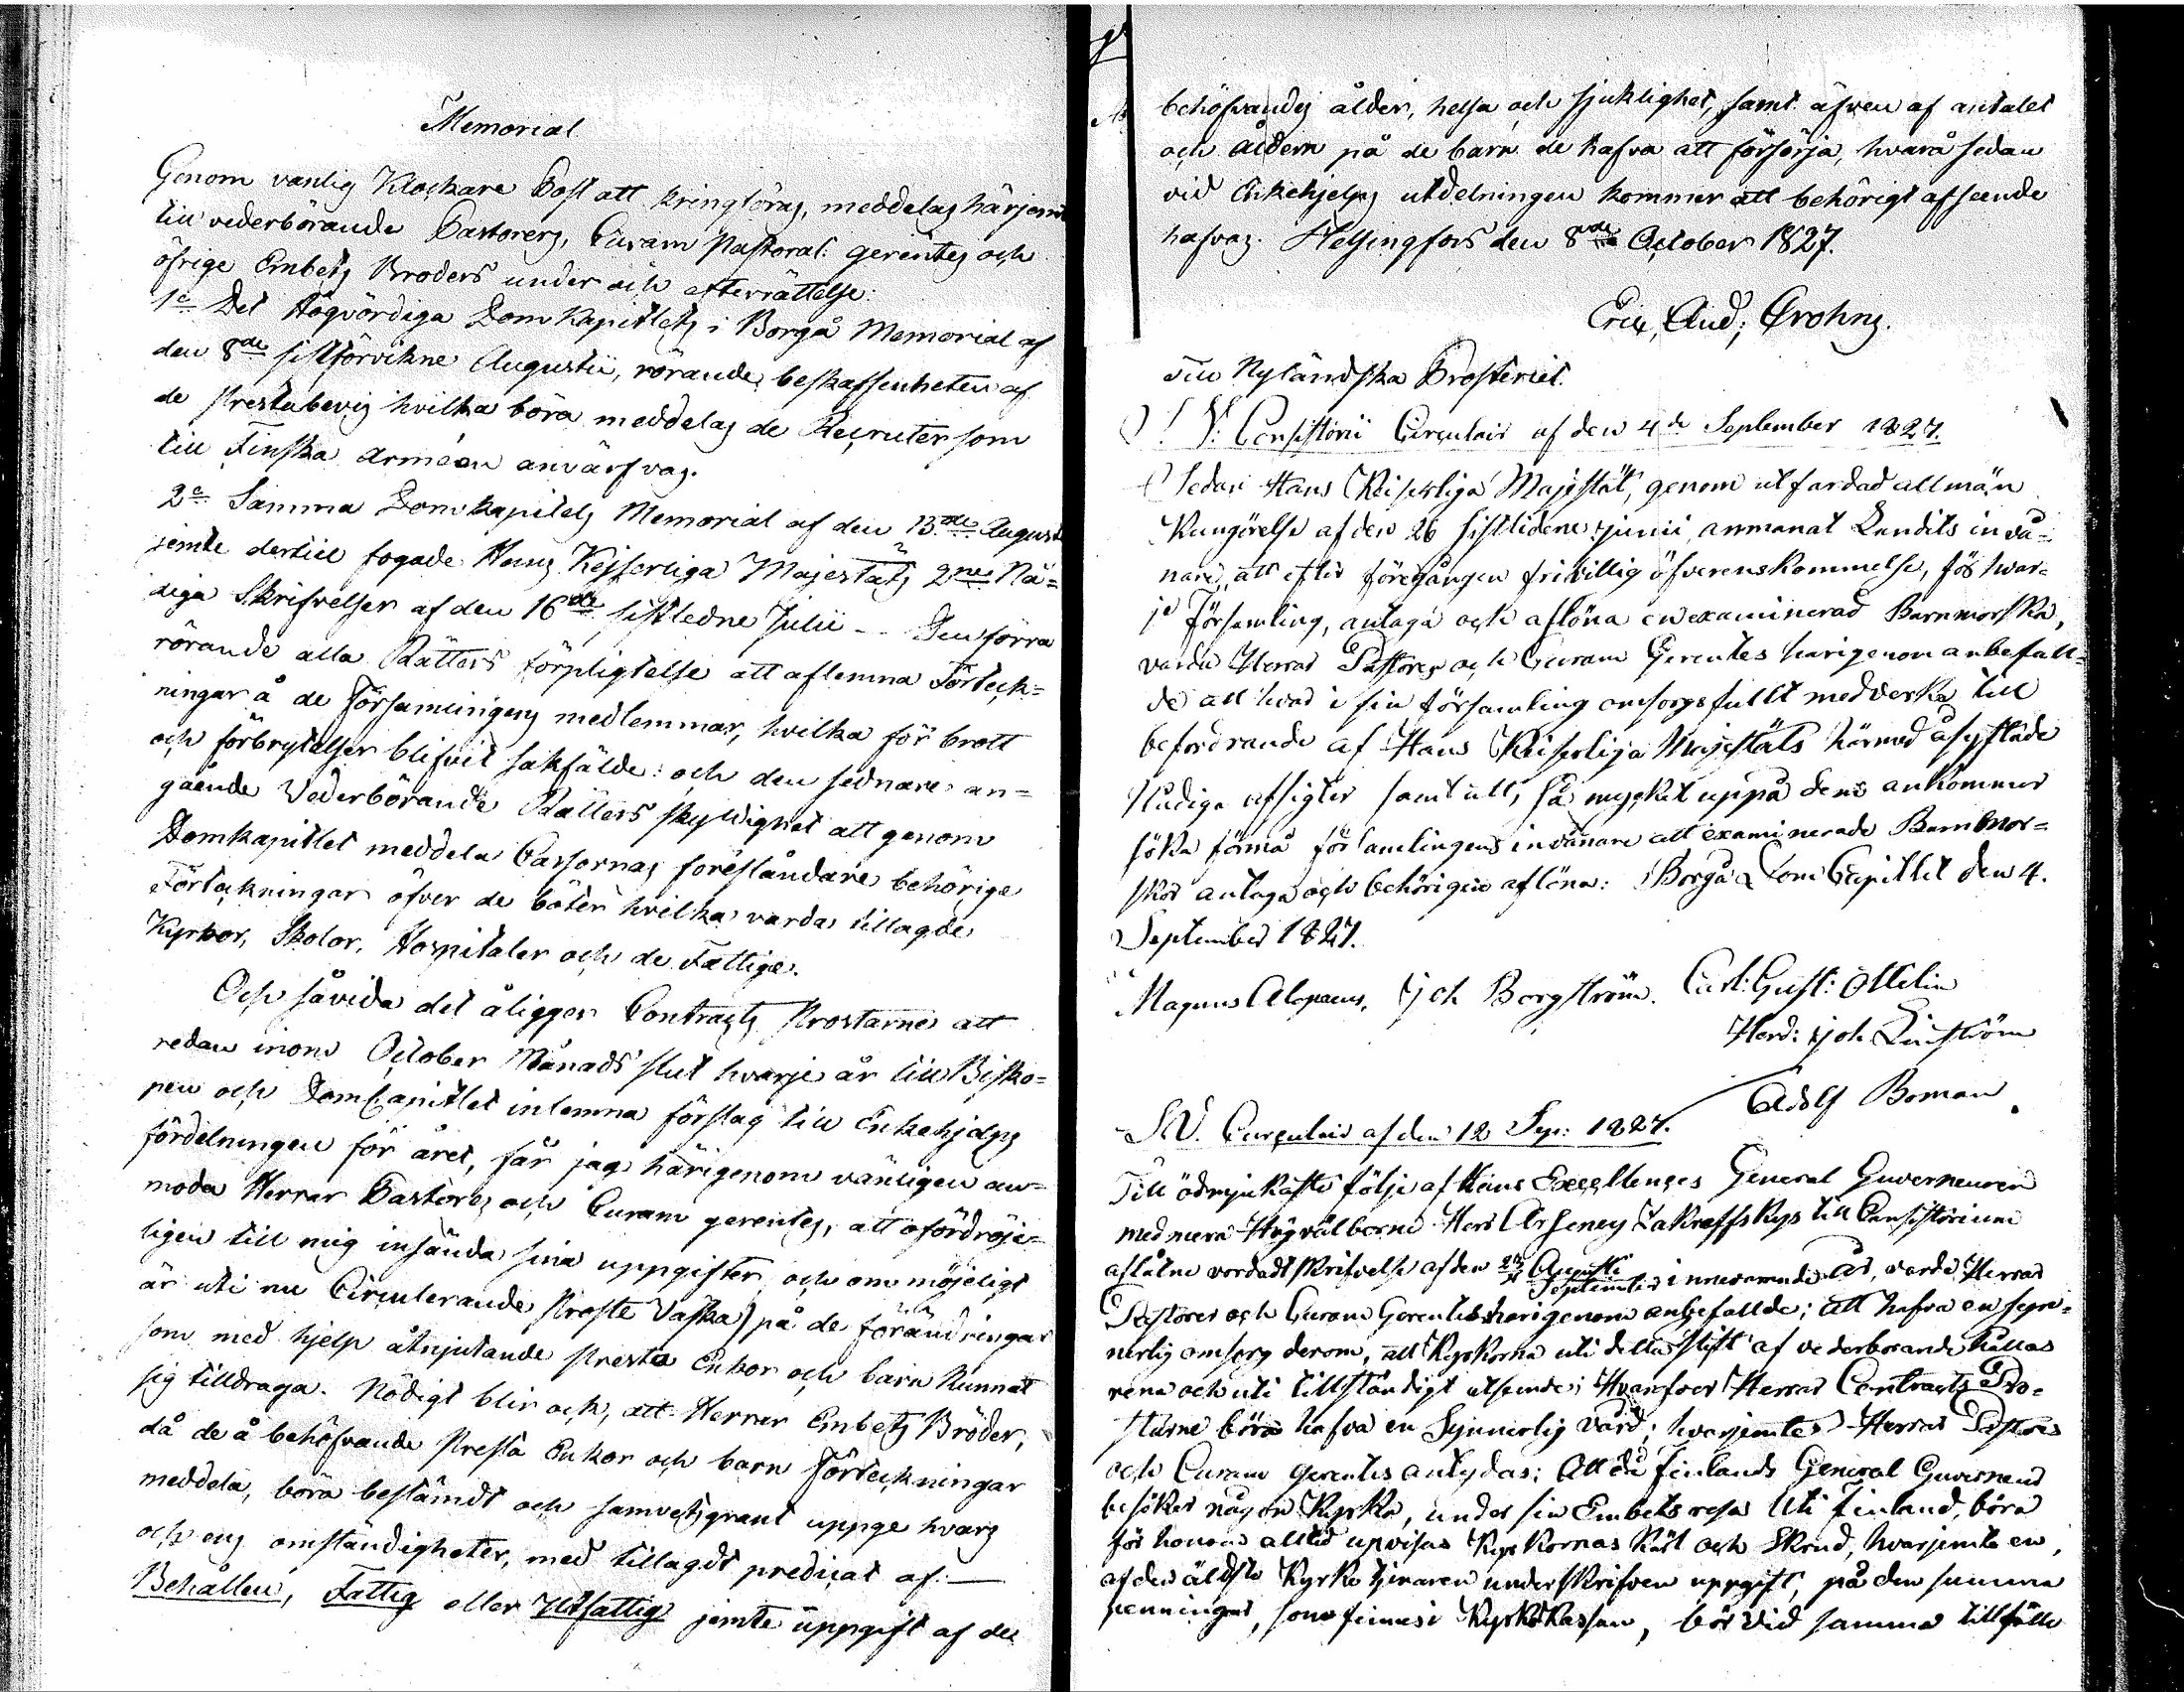 Memorial
Genom vanlig Klockare Post att kringföras, meddelas härjemt
till vederbörande Pastorers, Curam Pastoral: gerentes och
öfrige Embets Bröders under och efterrättelse:
1o Det Högvördiga Domkapitlets i Borgå Memorial af
den 8de sistförvikne Augustii, rörande beskaffenheten af
de Prestabevis hvilka böra meddelas de Recruter som
till Finska Arméen anvärfvas.
2o Samma Domkapitels Memorial af den 13de Augusti
jemte dertill fogade Hans Kejserliga Majestäts 2ne Nå=
diga Skrifvelser af den 16de sistledne Julii - - Den förra
rörande alla Rätters förpligtelse att aflemna Förteck=
ningar å de Församlingens medlemmar, hvilka för brott
och förbrytelser blifvit sakfälde: och den sednare an=
gående Vederbörande Rätters skyldighet att genom
Domkapitlet meddela Cassornas föreståndare behörige
Förteckningar öfver de böter hvilka varda tillagde
Kyrkor, Skolor, Hospitaler och de Fattige.
Och såvida det åligger Contracts Prostarne att
redan inom October Månads slut hvarje år till Bisko=
pen och DomCapitlet inlemna förslag till Enkehjelps
fördelningen för året, får jag härigenom vänligen an=
moda Herrar Pastores och Curam gerentes, att ofördröje=
ligen till mig insända sina uppgifter och om möjeligt
är uti nu Circulerande Proste Vaska) på de förändringar
som med hjelp åtnjutande Presta Enkor och barn kunnat
sig tilldraga. Nödigt blir ock, att Herrar Embets Bröder,
då de å behöfvande Presta Enkor och barn Förteckningar
meddela, böra bestämdt och samvetsgrant uppge hvars
och ens omständigheter, med tillagdt predicat af: —
Behållen, Fattig eller Utfattig jemte uppgift af de
behöfvandes ålder, helsa och sjuklighet, samt äfven af antalet
och åldern på de barn de hafva att försörja, hvarå sedan
vid Enkehjelps utdelningen kommer att behörigt afseende
hafvas. Helsingfors den 8de October 1827.
Eric, And; Crohns.
Till Nyländska Prosteriet.
V: Consistorii Circulair af den 4de September 1827.
Sedan Hans Keiserliga Majestät, genom utfärdad allmän
Kungörelse af den 26 sistlidene Junii anmanat Landets invå=
nare, att efter föregången frivillig öfverenskommelse, för hvar=
je Församling, antaga och aflöna en examinerad Barnmorska,
varda Herrar Pastores och Curam Gerentes härigenom anbefall=
de att hvar i sin församling omsorgsfullt medverka till
befordrande af Hans Keiserliga Majestäts härmed åsyftade
Nådiga afsigter samt att, så mycket uppå dem ankommer
söka förmå församlingens invånare att examinerade Barnmor=
skor antaga och behörigen aflöna: Borgå DomCapittel den 4.
September 1827.
Magnus Alopaeus. Joh Borgström. Carl: Gust: Ottelin
Herd: Joh. Linström
Adolf Boman
S.V. Circulair af den 12 Sep: 1827.
Till ödmjukaste följe af Hans Excellences General Guverneuren
med mera Högvälborne Herr Arseney Zakreffskys till Consistorium
aflåtne vordadt skrifvelse af den Augusti
September innevarande år, varda Herrar
Pastores och Curam Gerentes härigenom anbefallde; att hafva en syn=
nerlig omsorg derom, att Kyrkorna uti detta Stift af vederbörande hållas
rena och uti tillständigt utseende; Hvarföre Herrar Contracts Pro=
starne böra hafva en Synnerlig vård; hvarjemte Herrar Pastores
och Curam gerentes antydas; Att då Finlands General Guverneur
besöker någon Kyrka, under sin Embets resa Uti Finland, böra
för honom alltid upvisas Kyrkornas Kärl och Skrud, hvarjemte en,
af den äldste Kyrkotjenaren underskrifven uppgift, på den summa
penningar, som finnes i Kyrkokassan, bör vid samma tillfälle